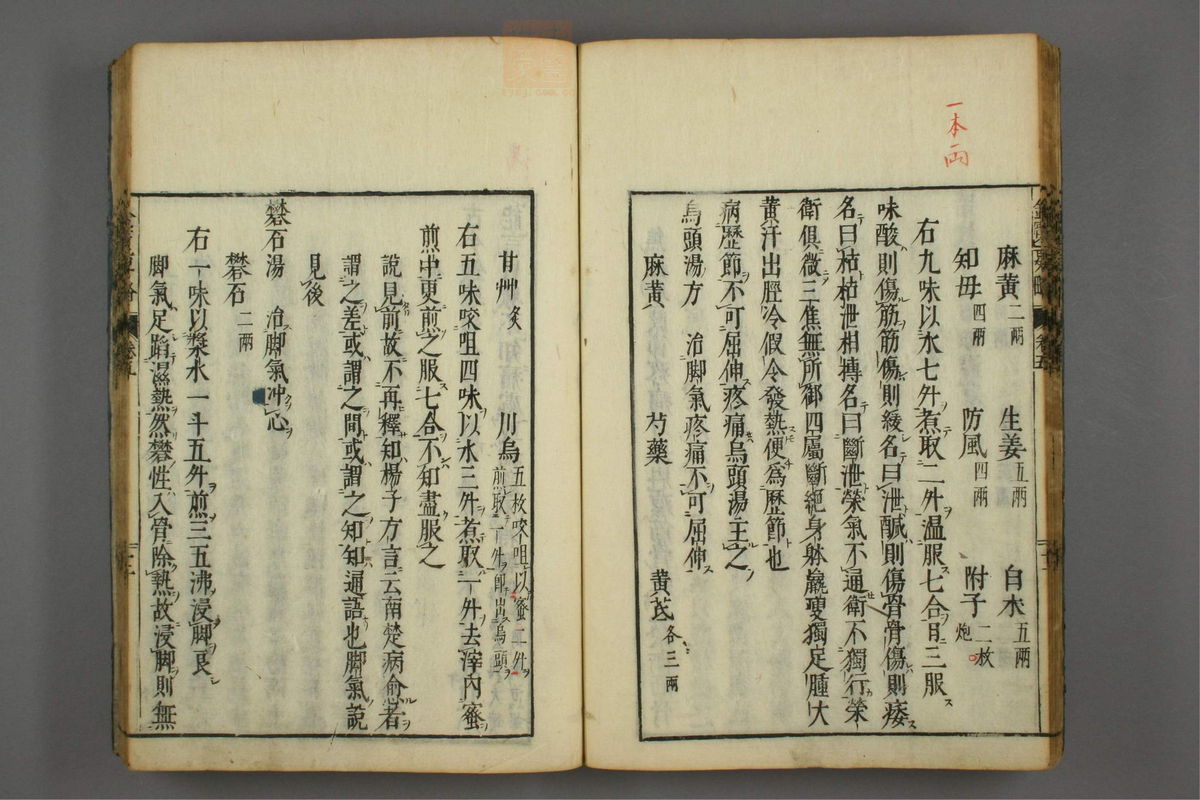 一本兩
麻黃二兩 生姜五兩 白朮五兩
知母四兩 防風四兩 附子二枚炮
右九味以水七升煮取二升溫服七合日三服
味酸則傷筋筋傷則緩名曰泄醎則傷骨骨傷則痿
名曰枯枯泄相摶名曰斷泄榮氣不通衛不獨行榮
衛俱微三焦無所御四屬斷絕身躰羸瘦獨足腫大
黃汗出脛冷假令發熱便爲歷節也
病歷節不可屈伸疼痛烏頭湯主之
烏頭湯方 治脚氣疼痛不可屈伸
麻黃 芍藥 黃芪各三兩
甘艸炙 川烏五枚㕮咀以蜜二升
煎取一升即出烏頭
右五味㕮咀四味以水三升煮取一升去滓內蜜
煎中更煎之服七合不知盡服之
說見前故不再釋知楊子方言云南楚病愈者
謂之差或謂之間或謂之知知通語也脚氣說
見後
礬石湯 治脚氣冲心
礬石二兩
右一味以漿水一斗五升煎三五沸浸脚良
脚氣足蹈濕熱然礬性入骨除熱故浸脚則無